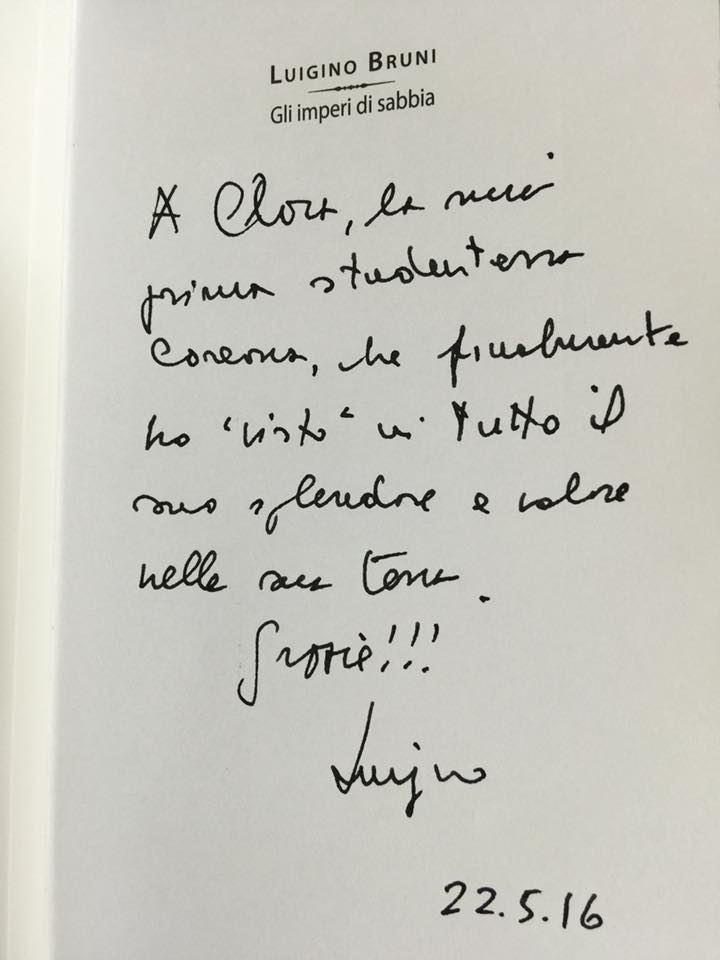 LUIGINO BRUNI
Gli imperi di sabbia
A Clora, la mia
prima studentessa
coreana, che finalmente
ho "visto" in tutto il
suo splendore e valore
nella sua terra.
Grazie!!!
Luigino
22.5.16